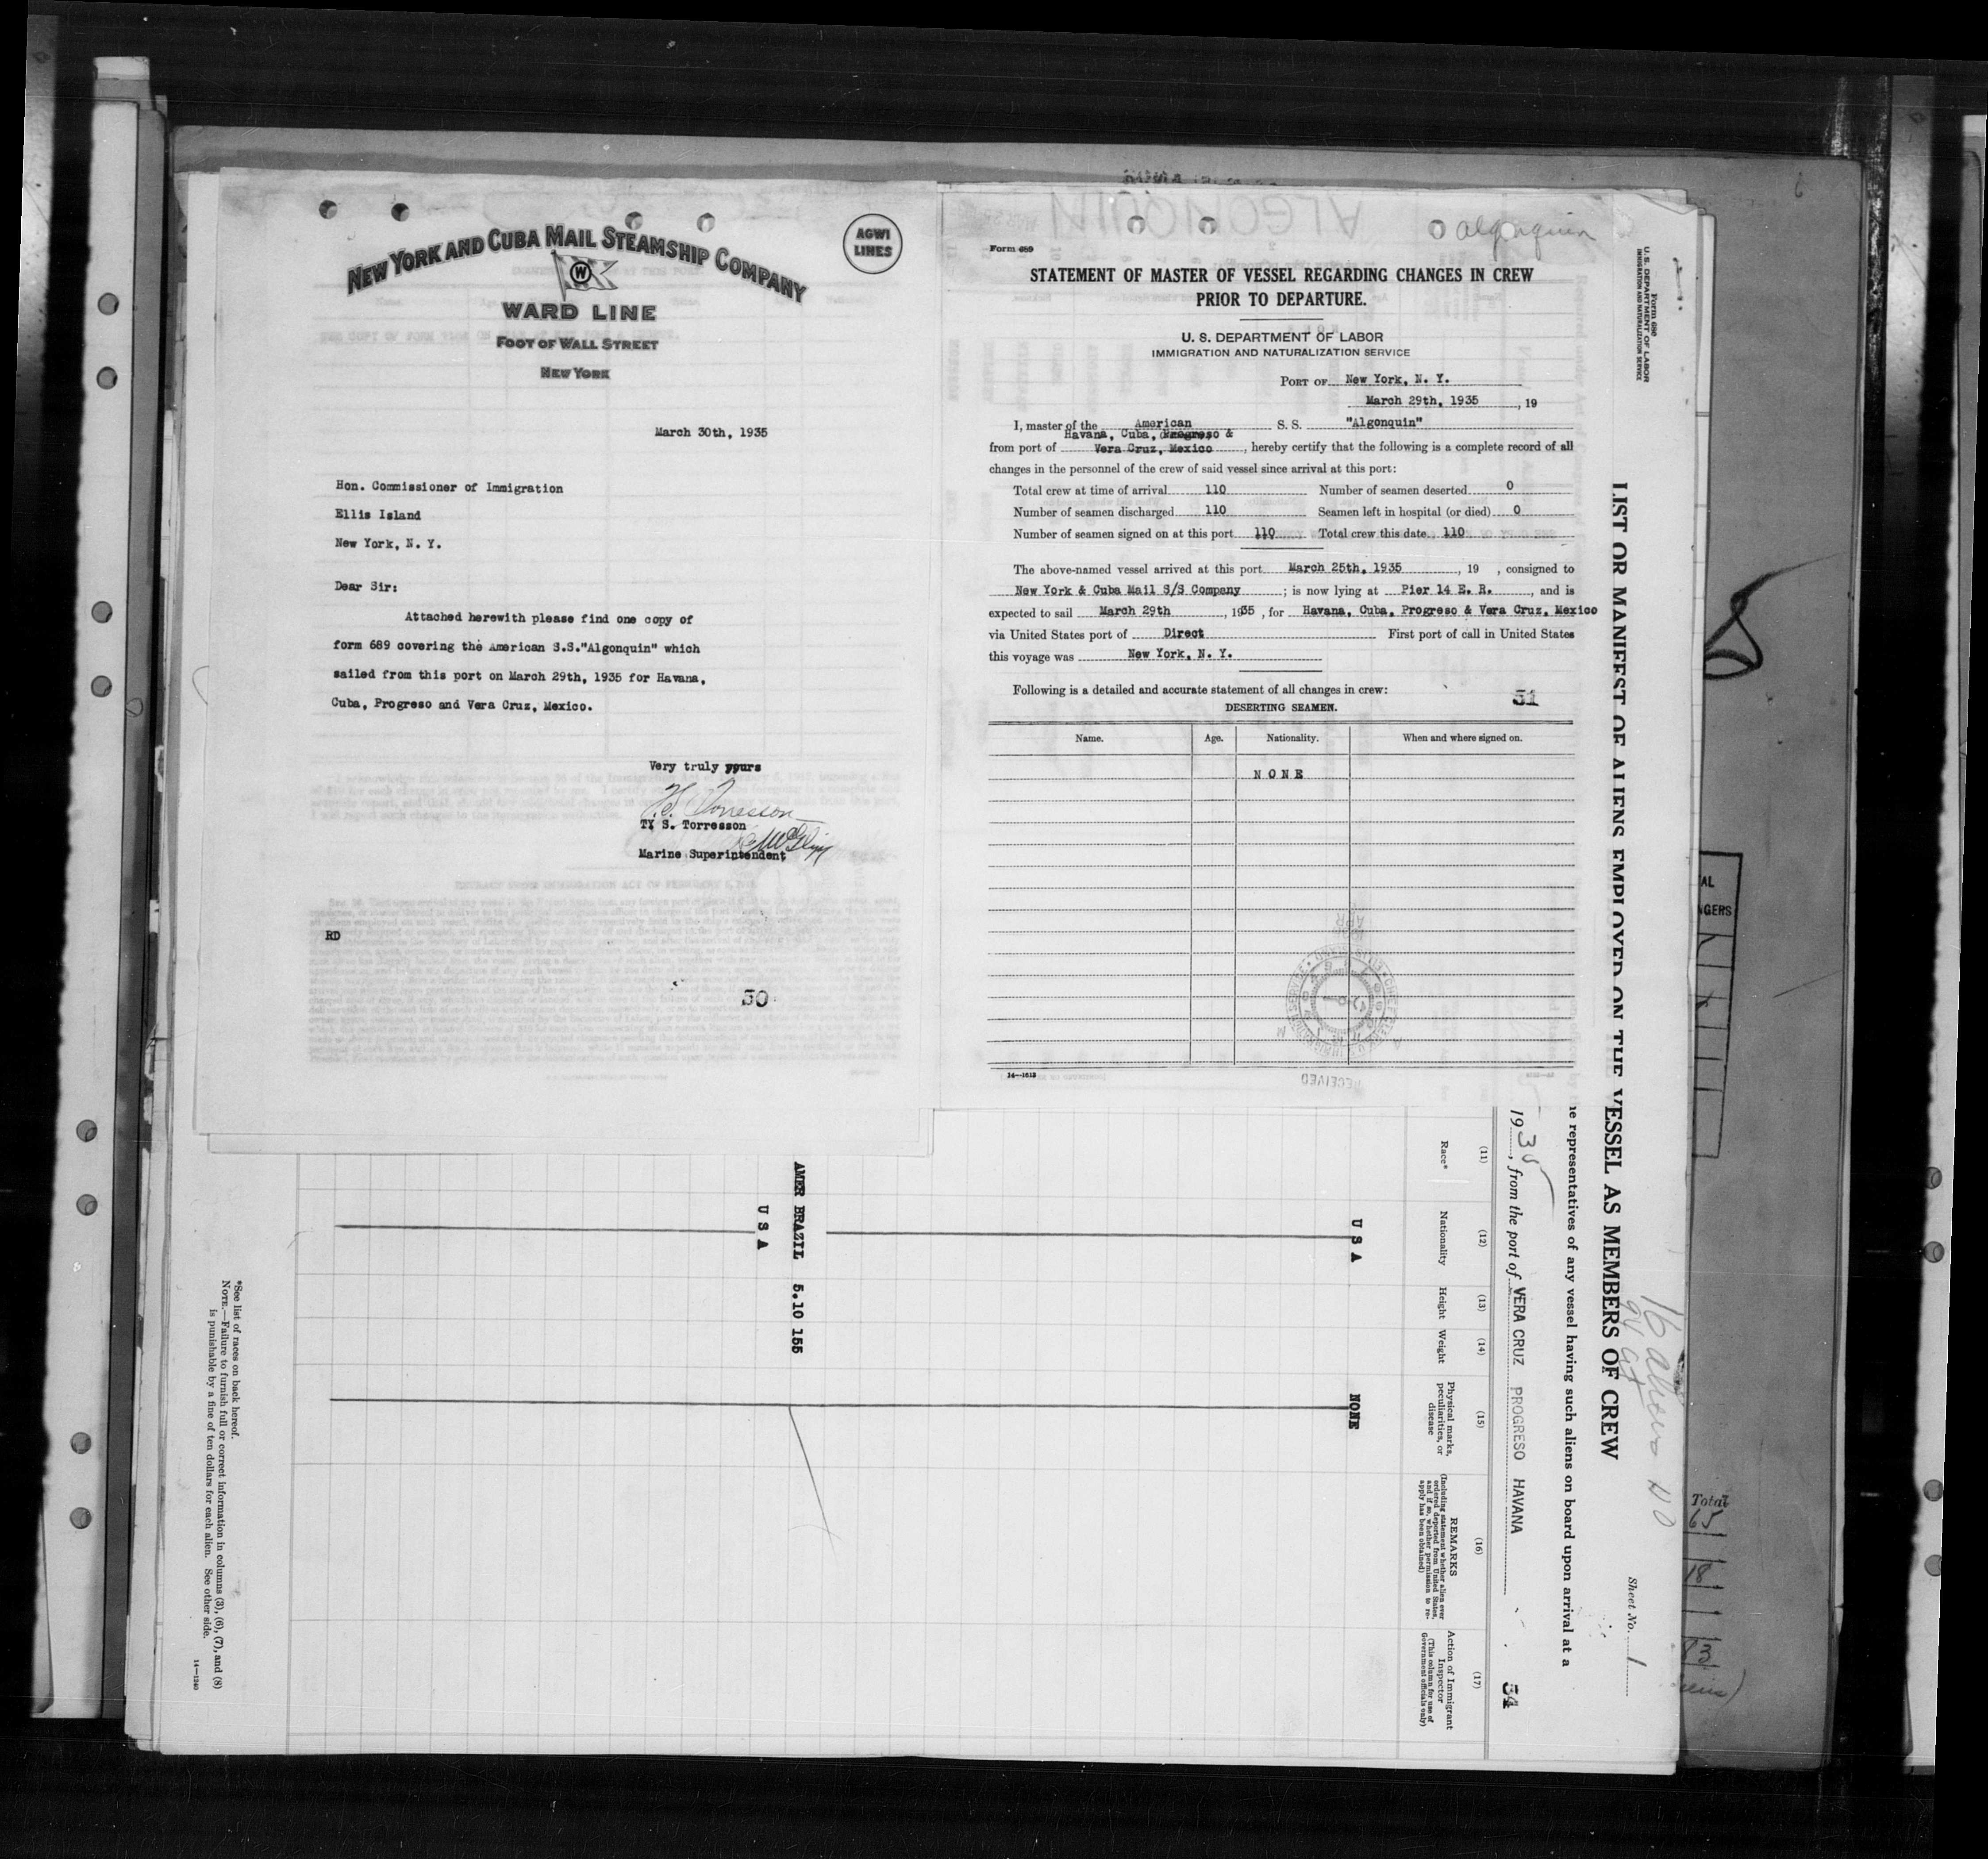 NEW YORK AND CUBA MAIL STEAMSHIP COMPANY
W
AGWI
LINES
WARD LINE
FOOT OF WALL STREET
NEW YORK
March 30th, 1935
Hon. Commissioner of Immigration
Ellis Island
New York, N. Y.
Dear Sir:
Attached herewith please find one copy of
form 689 covering the American S.S."Algonquin" which
sailed from this port on March 29th, 1935 for Havana,
Cuba, Progreso and Vera Cruz, Mexico.
Very truly yours
T. S. Torresson
TY S. Torresson
Marine Superintendent
RD
50
Algonquin
Form 689
STATEMENT OF MASTER OF VESSEL REGARDING CHANGES IN CREW
PRIOR TO DEPARTURE.
U. S. DEPARTMENT OF LABOR
IMMIGRATION AND NATURALIZATION SERVICE
PORT OF New York, N. Y.
March 29th, 1935, 19
I, master of the American S. S. "Algonquin"
Havana, Cuba, Progreso &
from port of Vera Cruz, Mexico, hereby certify that the following is a complete record of all
changes in the personnel of the crew of said vessel since arrival at this port:
Total crew at time of arrival 110 Number of seamen deserted 0
Number of seamen discharged 110 Seamen left in hospital (or died) 0
Number of seamen signed on at this port 110 Total crew this date 110
The above-named vessel arrived at this port March 25th, 1935, 19 , consigned to
New York & Cuba Mail S/S Company ; is now lying at Pier 14 E. R. , and is
expected to sail March 29th , 1935 , for Havana, Cuba, Progreso & Vera Cruz, Mexico
via United States port of Direct First port of call in United States
this voyage was New York, N. Y.
Following is a detailed and accurate statement of all changes in crew:
51
DESERTING SEAMEN.
Name. Age. Nationality. When and where signed on.
NONE
14—1613
RECEIVED
Form 680
U. S. DEPARTMENT OF LABOR
IMMIGRATION AND NATURALIZATION SERVICE
LIST OR MANIFEST OF ALIENS EMPLOYED ON THE VESSEL AS MEMBERS OF CREW
Sheet No. 1
16 aliens
representatives of any vessel having such aliens on board upon arrival at a
1935, from the port of VERA CRUZ PROGRESO HAVANA
54
(11) (12) (13) (14) (15) (16) (17)
Race*
Nationality
Height
Weight
Physical marks,
peculiarities, or
disease
REMARKS
(Including statement whether alien ever
ordered deported from United States,
and if so, whether permission to re-
apply has been obtained)
Action of Immigrant
Inspector
(This column for use of
Government officials only)
U S A
NONE
AMER BRAZIL 5.10 155
U S A
*See list of races on back hereof.
NOTE.—Failure to furnish full or correct information in columns (3), (6), (7), and (8)
is punishable by a fine of ten dollars for each alien. See other side.
14—1240
Total
65
18
83